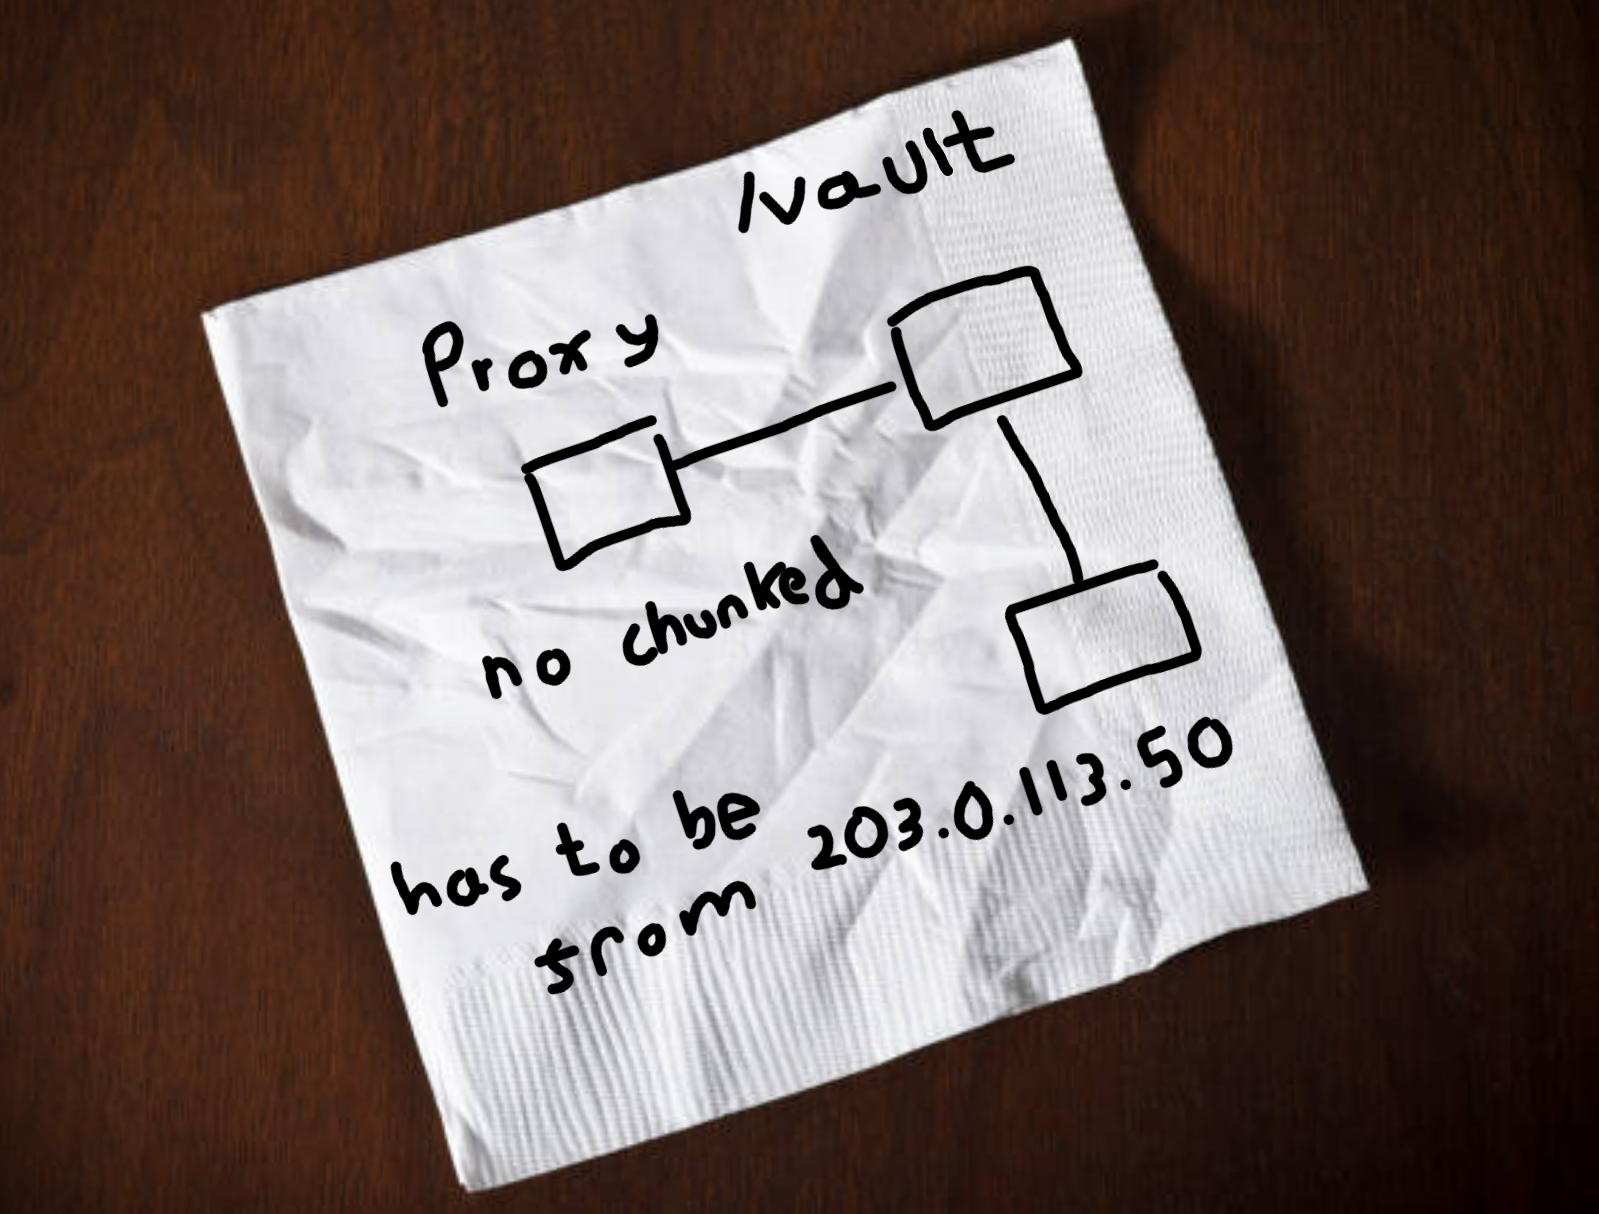 /vault
Proxy
no chunked
has to be
from 203.0.113.50